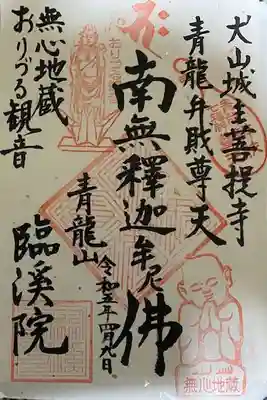 犬山城主菩提寺
青龍弁財尊天
南無釋迦牟尼佛
無心地蔵
おりづる観音
青龍山
令和五年四月九日
臨溪院
無心地蔵